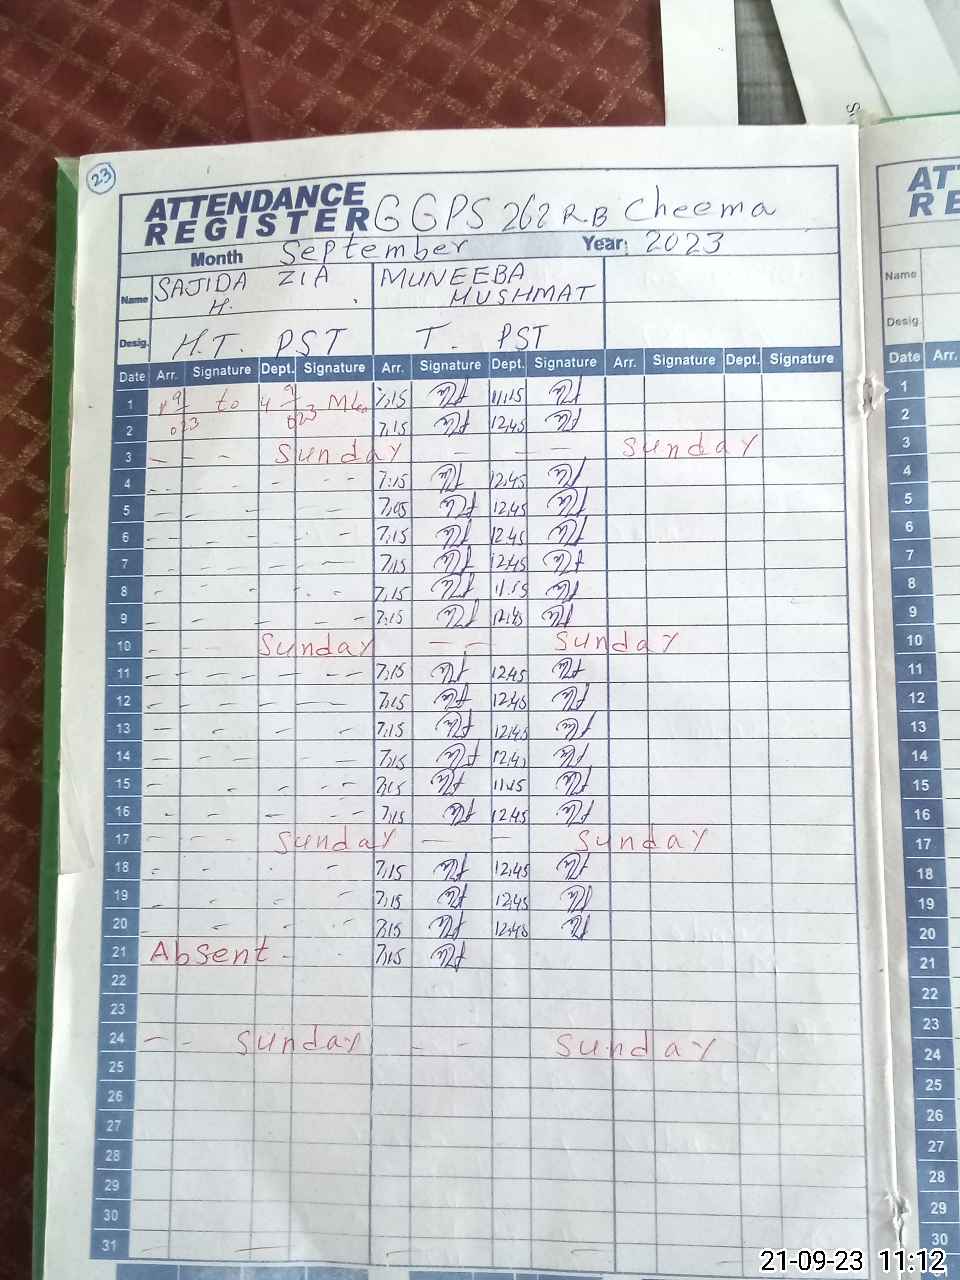 23
ATTENDANCE REGISTER GGPS 262 RB Cheema
Month September Year: 2023
Name SAJIDA ZIA H. MUNEEBA HUSHMAT
Desig. H.T. PST T. PST
Date Arr. Signature Dept. Signature Arr. Signature Dept. Signature Arr. Signature Dept. Signature
1 to 7,15 11,15
2 7,15 12,45
3 Sunday Sunday
4 7:15 12,45
5 7,05 12,45
6 7,15 12,45
7 7,15 12,45
8 7,15 11.55
9 7,15 12,45
10 Sunday Sunday
11 7,15 12,45
12 7,15 12,45
13 7,15 12,45
14 7,15
15 7,15 11,45
16 7,15 12,45
17 Sunday Sunday
18 7,15 12,45
19 7,15 12,45
20 7,15 12,45
21 Absent 7,15
22
23
24 Sunday Sunday
25
26
27
28
29
30
31
Name
Desig.
Date Arr.
1
2
3
4
5
6
7
8
9
10
11
12
13
14
15
16
17
18
19
20
21
22
23
24
25
26
27
28
29
30
21-09-23 11:12